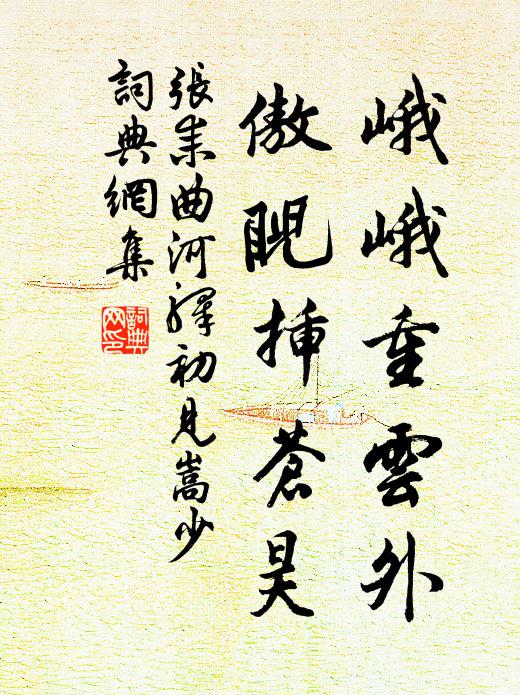 峨峨重雲外
傲睨挿蒼昊
張耒曲河驛初見嵩少
詞典網集
詞典
网印